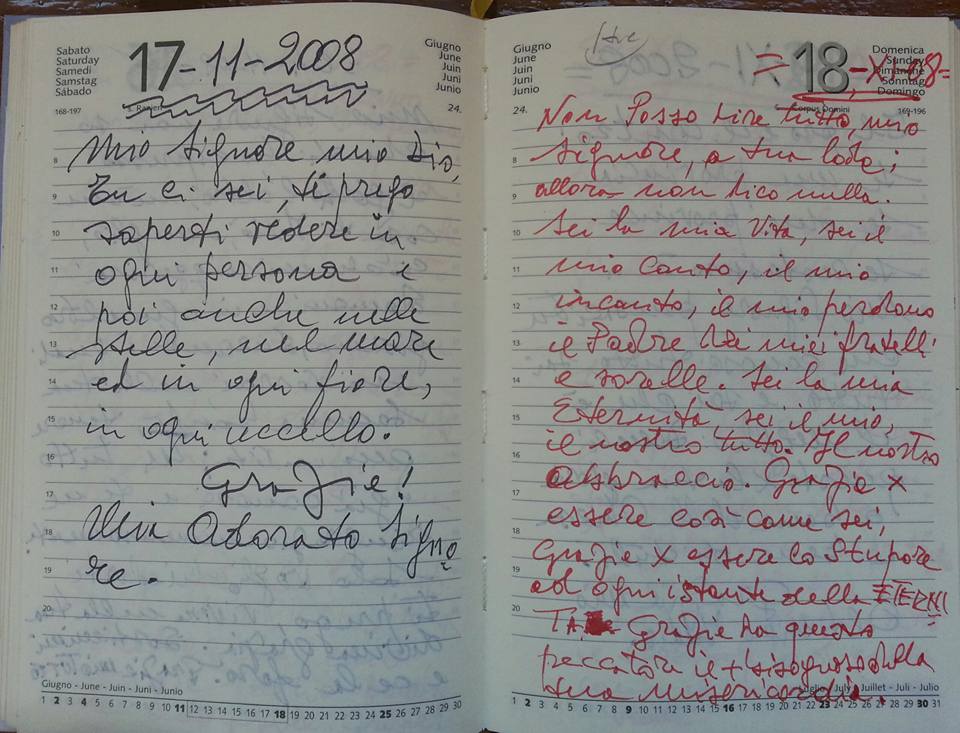 Sabato
Saturday
Samedi
Samstag
Sábado
17-11-2008
Giugno
June
Juin
Juni
Junio
168-197
S. Ranieri
24.
Mio Signore mio Dio,
Tu ci sei, ti prego
saperti vedere in
ogni persona e
poi anche nelle
stelle, nel mare
ed in ogni fiore,
in ogni uccello.
Grazie!
Mio Adorato Signo
re.
8
9
10
11
12
13
14
15
16
17
18
19
20
Giugno - June - Juin - Juni - Junio
1 2 3 4 5 6 7 8 9 10 11 12 13 14 15 16 17 18 19 20 21 22 23 24 25 26 27 28 29 30
Giugno
June
Juin
Juni
Junio
= 18-XI-08=
Domenica
Sunday
Dimanche
Sonntag
Domingo
24.
Corpus Domini
169-196
Non Posso dire tutto, mio
Signore, a tua lode;
allora non dico nulla.
Sei la mia Vita, sei il
mio Canto, il mio
incanto, il mio perdono
il Padre dei miei fratelli
e sorelle. Sei la mia
Eternità, sei il mio,
il nostro tutto. Il nostro
abbraccio. Grazie x
essere così come sei,
Grazie x essere lo Stupore
ad ogni istante della ETERNI
TA Grazie da questo
peccatore il + bisognoso della
tua misericordia.
8
9
10
11
12
13
14
15
16
17
18
19
20
Luglio - July - Juillet - Juli - Julio
1 2 3 4 5 6 7 8 9 10 11 12 13 14 15 16 17 18 19 20 21 22 23 24 25 26 27 28 29 30 31